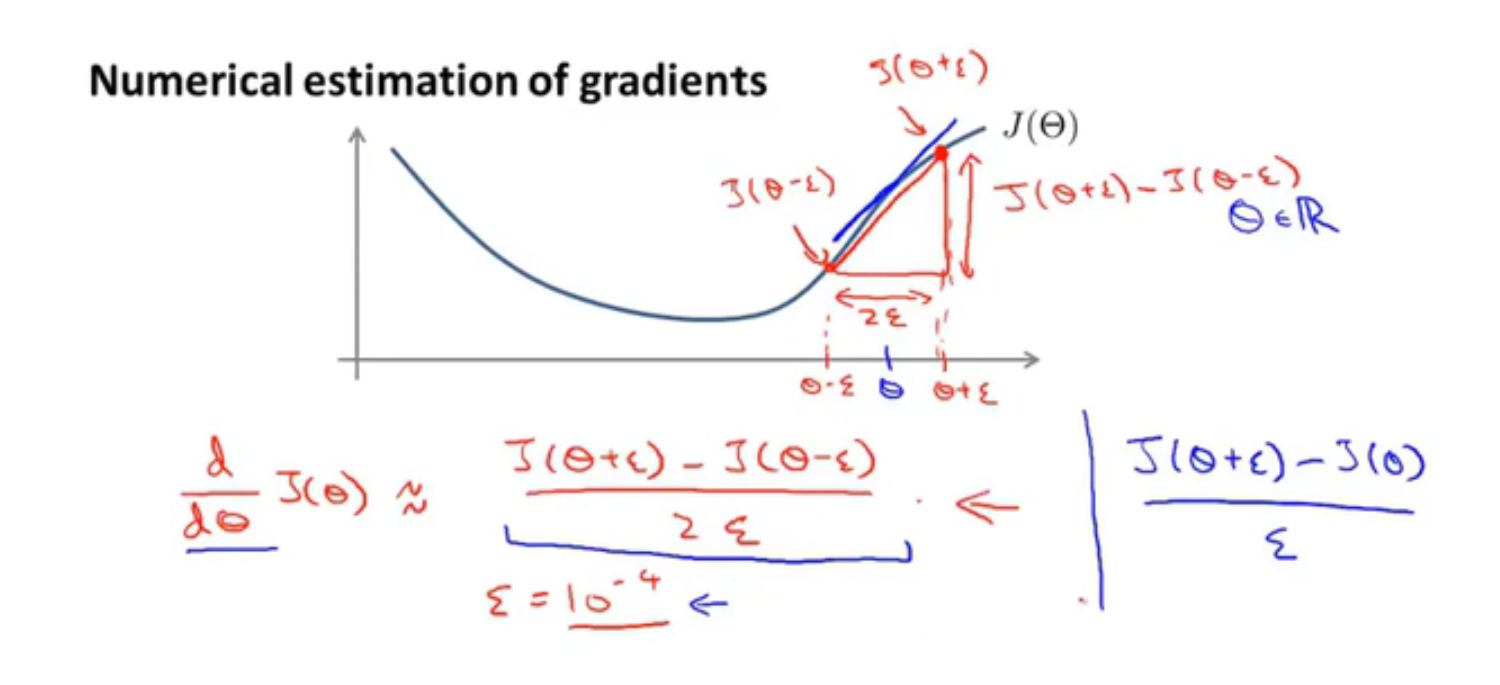 Numerical estimation of gradients
J(θ+ε)
J(Θ)
J(θ-ε)
J(θ+ε)-J(θ-ε)
θ∈ℝ
2ε
θ-ε θ θ+ε
d/dθ J(θ) ≈ (J(θ+ε) - J(θ-ε))/(2ε) ← | (J(θ+ε)-J(θ))/ε
ε = 10^-4 ←